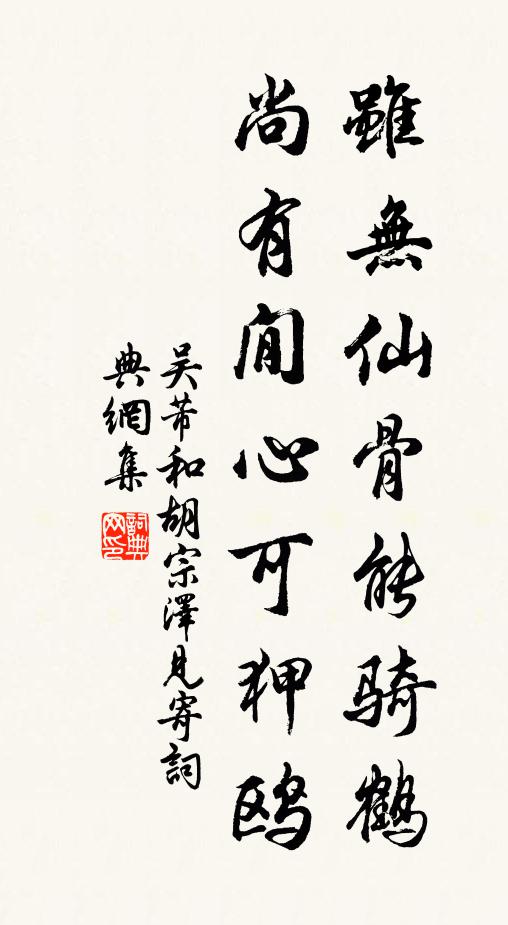 雖無仙骨能騎鶴
尚有閒心可狎鸥
吴芾和胡宗澤見寄詞
典網集
詞典
网印